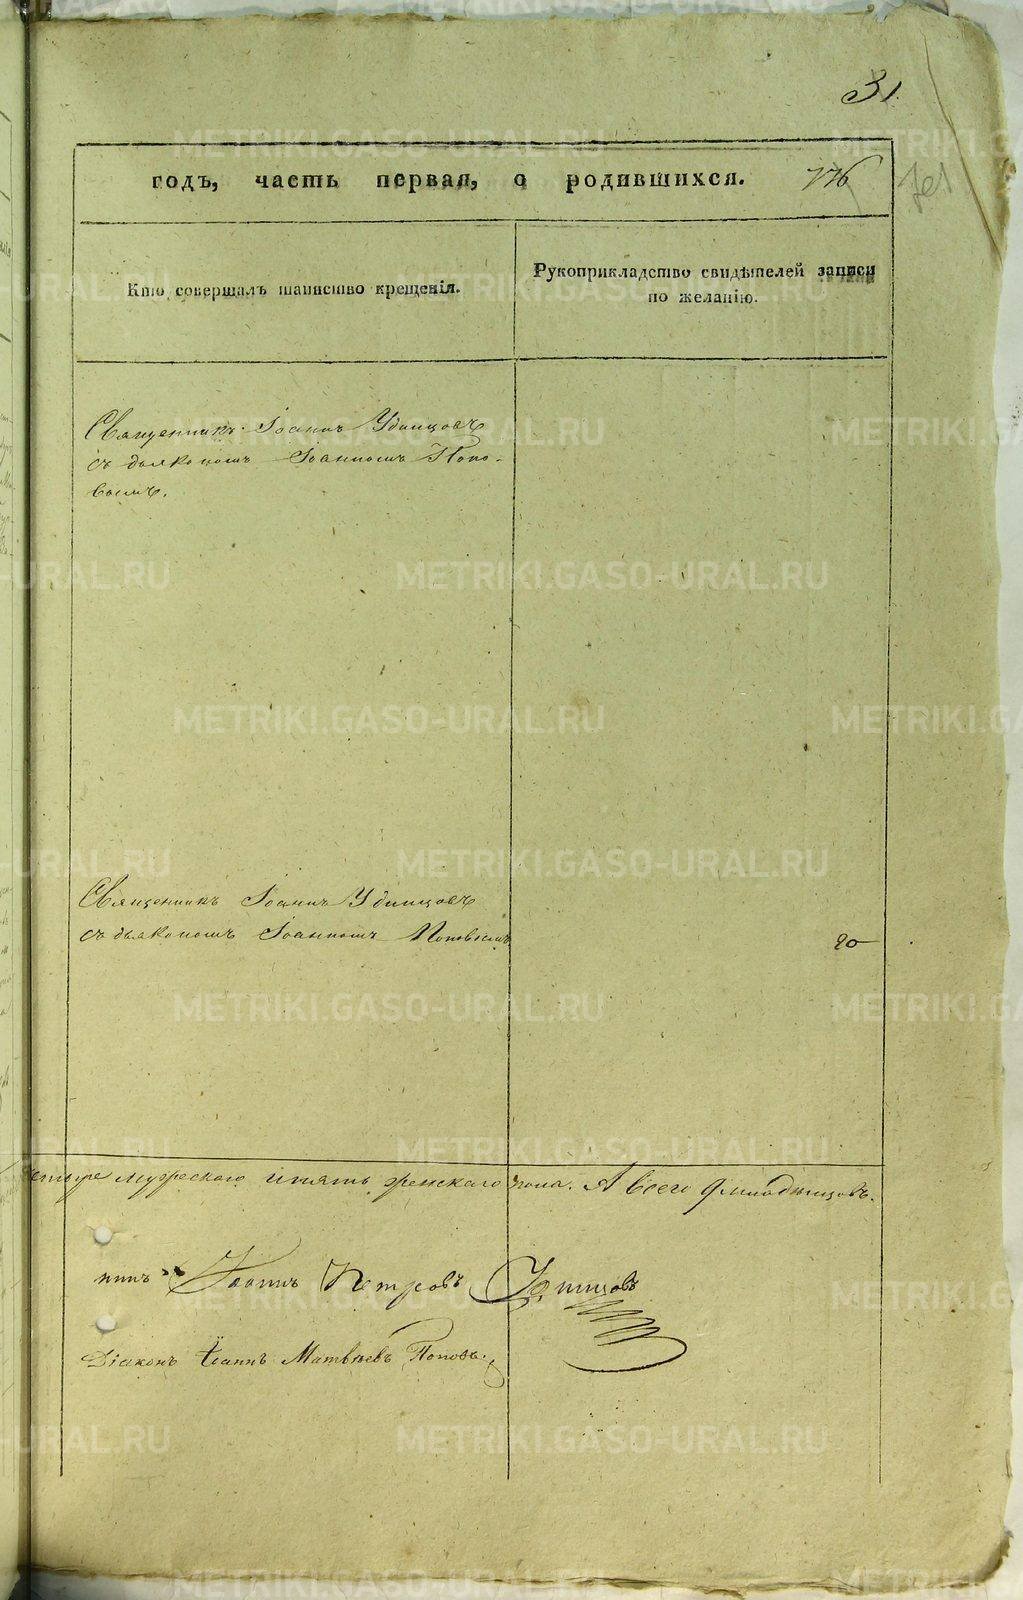 31.
годъ, часть первая, о родившихся. 776
Кто совершалъ таинство крещенія.
Рукоприкладство свидѣтелей записи
по желанію.
Священникъ Іоаннъ Удинцовъ
съ дьякономъ Іоанномъ Попо-
вымъ.
Священникъ Іоаннъ Удинцовъ
съ дьякономъ Іоанномъ Поповымъ
90
мужескаго и пять женскаго пола. А всего 9 младенцовъ.
Іоаннъ Петровъ Удинцовъ
Діаконъ Іоаннъ Матвѣевъ Поповъ.
METRIKI.GASO-URAL.RU